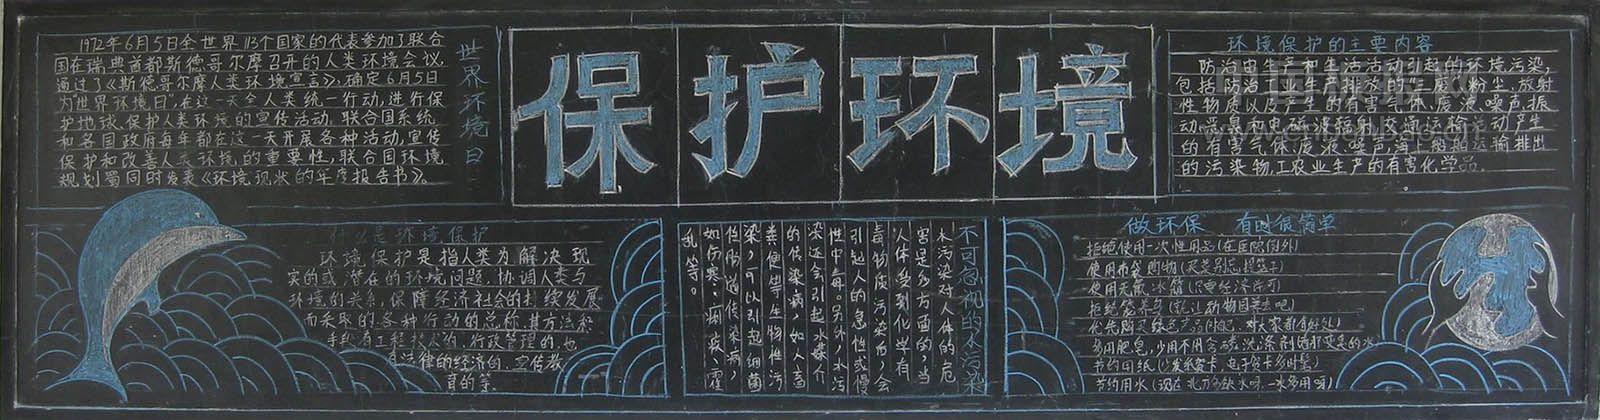 世界环境日
1972年6月5日全世界113个国家的代表参加了联合
国在瑞典首都斯德哥尔摩召开的人类环境会议,
通过了《斯德哥尔摩人类环境宣言》,确定6月5日
为"世界环境日"在这一天全人类统一行动,进行保
护地球、保护人类环境的宣传活动。联合国系统
和各国政府每年都在这一天开展各种活动,宣传
保护和改善人类环境的重要性,联合国环境
规划署同时发表《环境现状的年度报告书》。
保护环境
环境保护的主要内容
防治由生产和生活活动引起的环境污染,
包括防治工业生产排放的"三废"、粉尘、放射
性物质以及产生的有害气体、废液、噪声、振
动、恶臭和电磁波辐射,交通运输活动产生
的有害气体、废液、噪声,海上船舶运输排出
的污染物,工农业生产的有害化学品.
什么是环境保护
环境保护是指人类为解决现
实的或潜在的环境问题,协调人类与
环境的关系,保障经济社会的持续发展
而采取的各种行动的总称.其方法和
手段有工程技术的、行政管理的,也
有法律的、经济的、宣传教
育的等.
不可忽视的水污染
水污染对人体的危
害是多方面的,当
人体受到化学有
毒物质污染后,会
引起人的急性或慢
性中毒。另外,水污
染还会引起水媒介
的传染病,如人畜
粪便等生物性污
染,可以引起细菌
性肠道传染病,
如伤寒、痢疾、霍
乱等。
做环保 有时很简单
拒绝使用一次性用品(在医院例外)
使用布袋购物(买菜另说,提篮子)
使用无氟冰箱(只要经济许可)
拒绝笼养鸟(就让动物园养去吧)
优先购买绿色产品(对自己、对大家都有好处)
多用肥皂,少用不用含磷洗涤剂
节约用纸(少发纸贺卡,电子贺卡多时髦)
节约用水(现在北方多缺水呀,一水多用嘛)